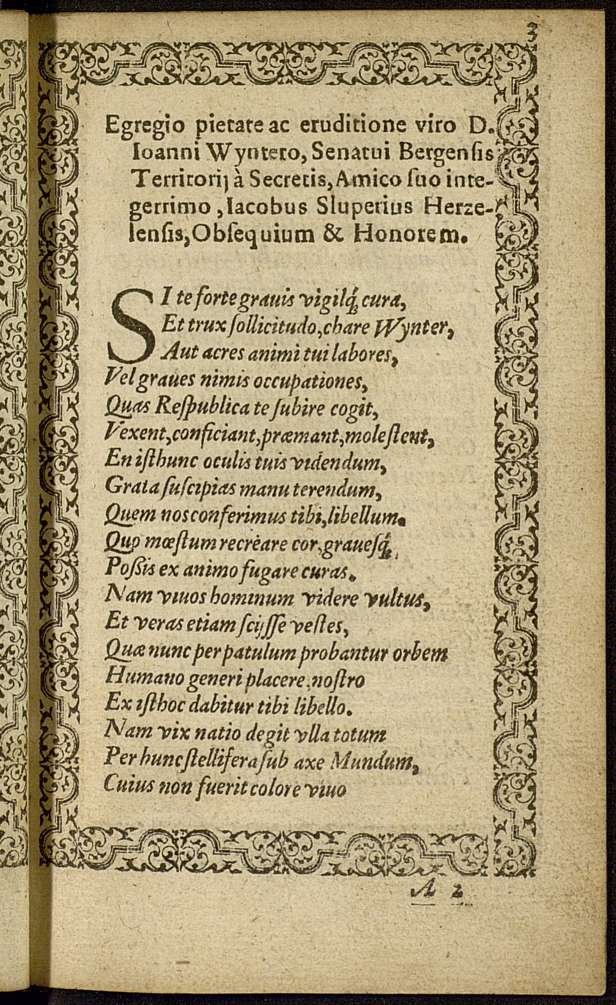 3
Egregio pietate ac eruditione viro D.
Ioanni Wyntero, Senatui Bergensis
Territorij à Secretis, Amico suo inte-
gerrimo, Iacobus Sluperius Herze-
lensis, Obsequium & Honorem.
SI te forte grauis vigilq́; cura,
Et trux sollicitudo, chare Wynter,
Aut acres animi tui labores,
Vel graues nimis occupationes,
Quas Respublica te subire cogit,
Vexent, conficiant, præmant, molestent,
En isthunc oculis tuis videndum,
Grata suscipias manu terendum,
Quem nos conferimus tibi, libellum.
Quo mœstum recrèare cor, grauesq́;
Possis ex animo fugare curas.
Nam viuos hominum videre vultus,
Et veras etiam scijsse vestes,
Quæ nunc per patulum probantur orbem
Humano generi placere, nostro
Ex isthoc dabitur tibi libello.
Nam vix natio degit vlla totum
Per hunc stellifera sub axe Mundum,
Cuius non fuerit colore viuo
A 2